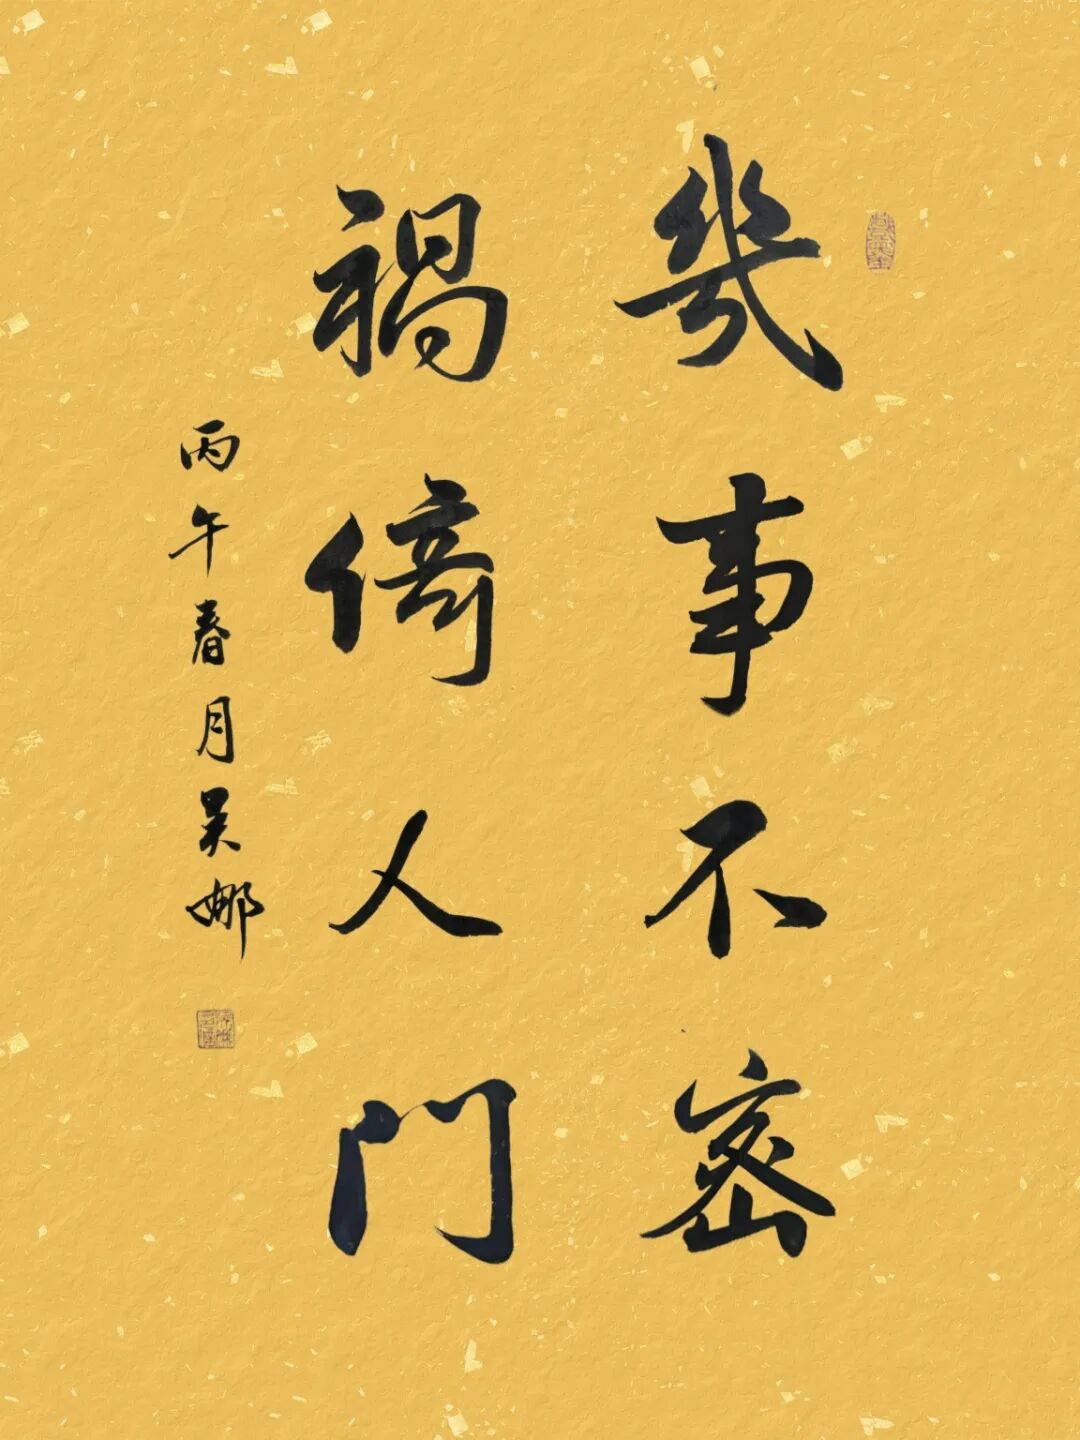 幾事不密
禍倚人门
丙午春月吴娜